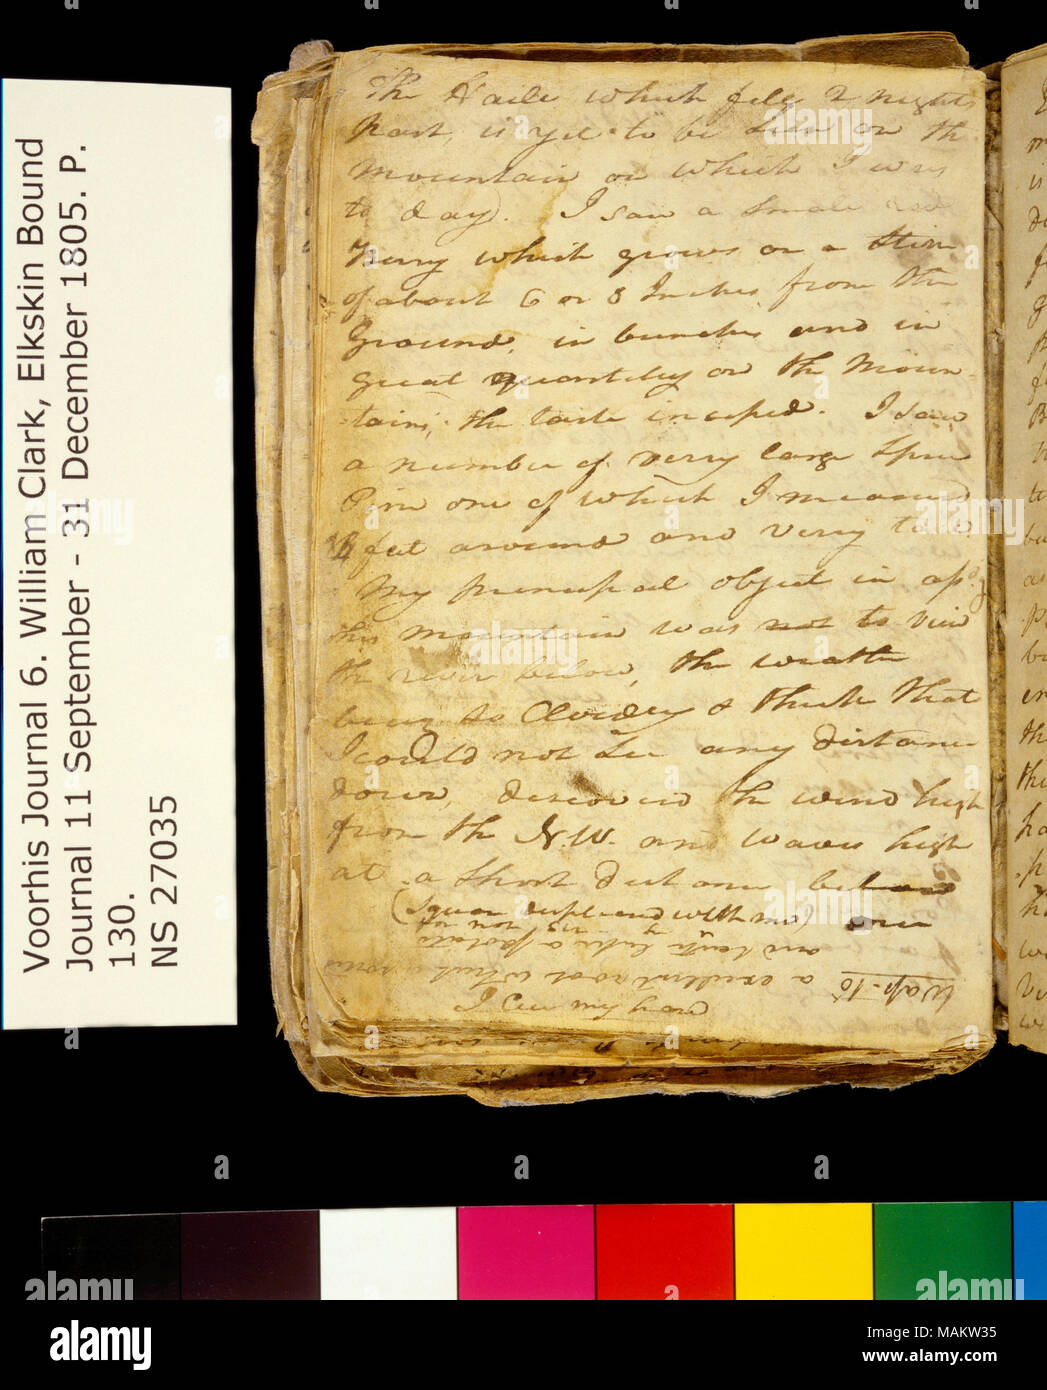 Voorhis Journal 6. William Clark, Elkskin Bound
Journal 11 September - 31 December 1805. P.
130.
NS 27035
The Haile which fell 2 nights
past, is yet to be Seen on the
mountain on which I was
to day). I saw a Small red
berry which grows on a Stem
of about 6 or 8 Inches from the
Ground, in bunches and in
great quantity on the Moun-
-tains, the taste insiped. I saw
a number of verry large Spruce
Pine one of which I measured
feet around and verry tall
My principal object in
this mountain was not to view
the river below, the weather
being So Cloudey & thick that
I could not See any distance
down, discovered the wind high
from the N.W. and waves high
at a Short distance below
our
(Squar displeased with me)
for not
Wap-to a excellent root which is
and taste like a potato
I Cut my hand
a
alamy
Image ID: MAKW35
www.alamy.com